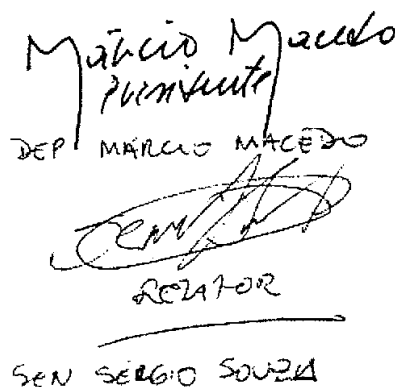 Márcio Macedo
Presidente
DEP MÁRCIO MACEDO
RELATOR
SEN SÉRGIO SOUZA